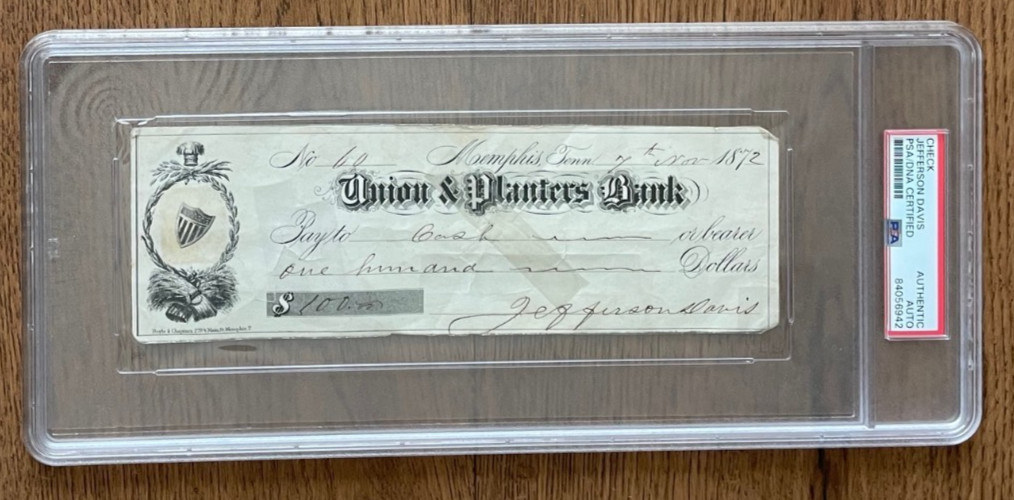 No 60 Memphis, Tenn. 7th Nov 1872
Union & Planters Bank
Pay to Cash or bearer
One hundred Dollars
$ 100.
Jefferson Davis
CHECK
JEFFERSON DAVIS
PSA/DNA CERTIFIED
PSA
AUTHENTIC
AUTO
84056942